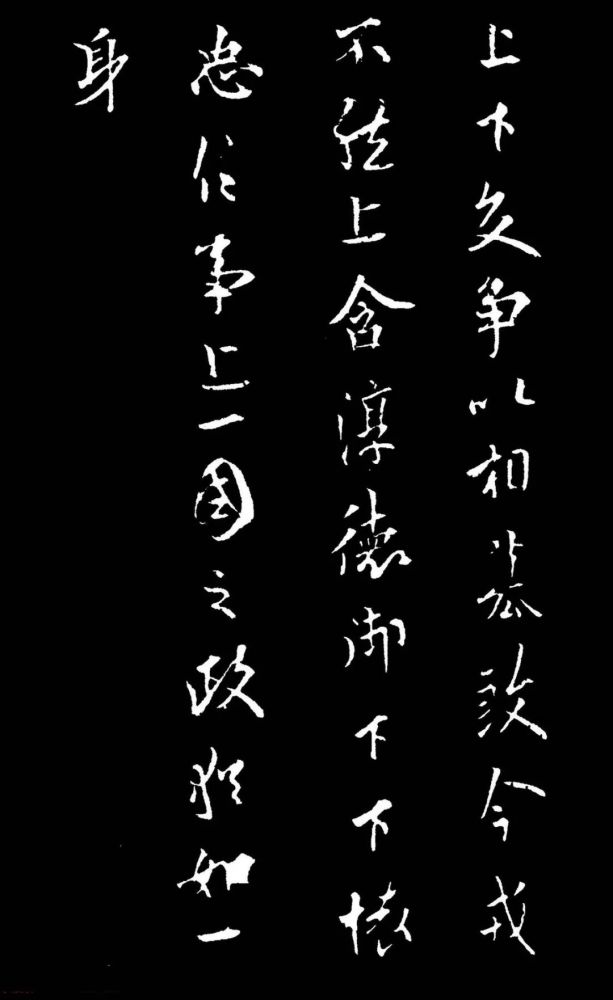 上下交争以相今戎
不然上含淳德御下下懷
忠信事上一國之政猶如一
身